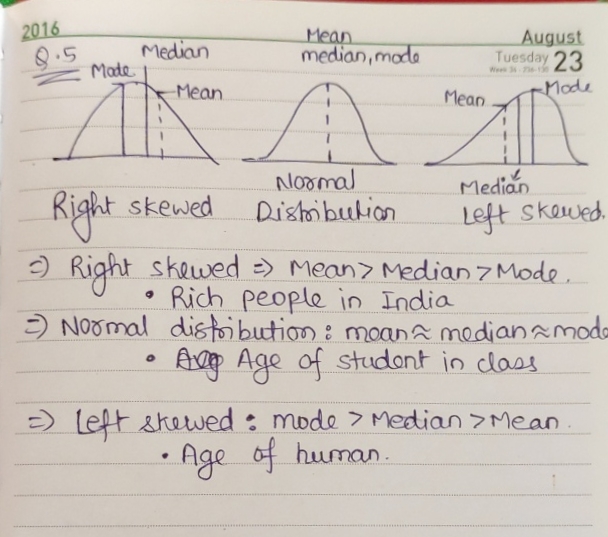 2016
August
Tuesday 23
Q.5
Mode
Median
Mean
Mean
median, mode
Mean
Mode
Median
Right skewed
Normal
Distribution
Left skewed.
=) Right skewed => Mean > Median > Mode.
• Rich people in India
=) Normal distribution : mean ≈ median ≈ mode
• Age of student in class
=) Left skewed : mode > Median > Mean.
• Age of human.